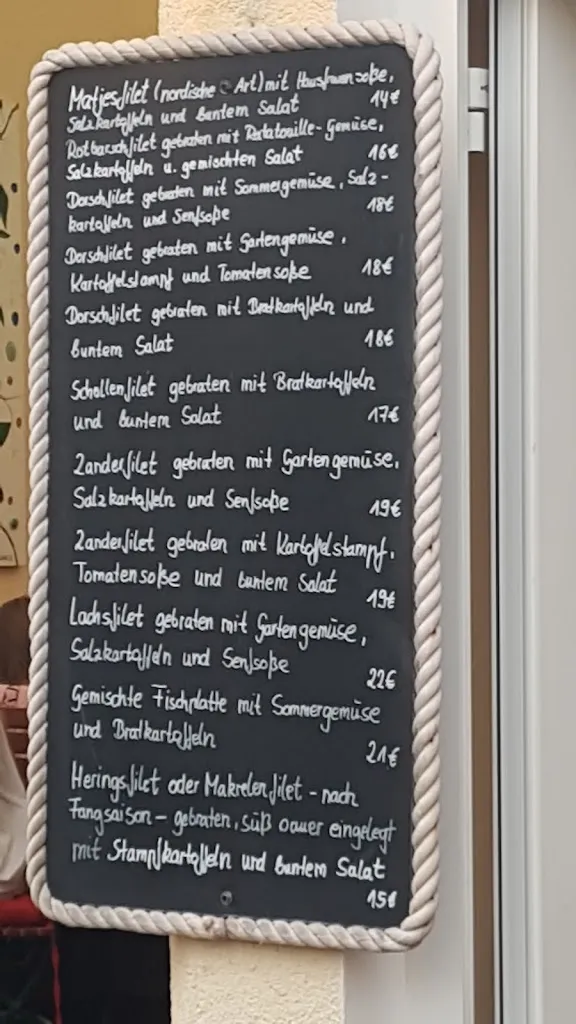 Matjesfilet (nordische Art) mit Hausfrauensoße,
Salzkartoffeln und buntem Salat 14€
Rotbarschfilet gebraten mit Ratatouille-Gemüse,
Salzkartoffeln u. gemischten Salat 16€
Dorschfilet gebraten mit Sommergemüse, Salz-
kartoffeln und Senfsoße 18€
Dorschfilet gebraten mit Gartengemüse,
Kartoffelstampf und Tomatensoße 18€
Dorschfilet gebraten mit Bratkartoffeln und
buntem Salat 18€
Schollenfilet gebraten mit Bratkartoffeln
und buntem Salat 17€
Zanderfilet gebraten mit Gartengemüse,
Salzkartoffeln und Senfsoße 19€
Zanderfilet gebraten mit Kartoffelstampf,
Tomatensoße und buntem Salat 19€
Lachsfilet gebraten mit Gartengemüse,
Salzkartoffeln und Senfsoße 22€
Gemischte Fischplatte mit Sommergemüse
und Bratkartoffeln 21€
Heringsfilet oder Makrelenfilet - nach
Fangsaison - gebraten, süß oauer eingelegt
mit Stampfkartoffeln und buntem Salat
15€